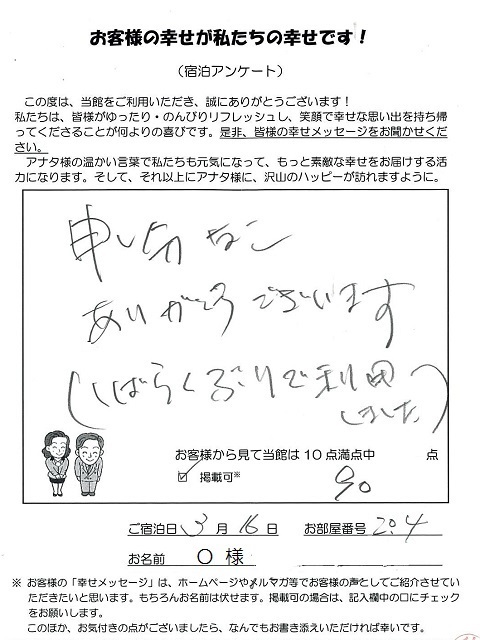 お客様の幸せが私たちの幸せです！
（宿泊アンケート）
この度は、当館をご利用いただき、誠にありがとうございます！
私たちは、皆様がゆったり・のんびりリフレッシュし、笑顔で幸せな思い出を持ち帰
ってくださることが何よりの喜びです。是非、皆様の幸せメッセージをお聞かせくだ
さい。
アナタ様の温かい言葉で私たちも元気になって、もっと素敵な幸せをお届けする活
力になります。そして、それ以上にアナタ様に、沢山のハッピーが訪れますように。
申し分なし
ありがとうございます
（しばらくぶりで利用
しました）
お客様から見て当館は10点満点中 点
☑ 掲載可※
90
ご宿泊日 3 月 16 日 お部屋番号 204
お名前 〇 様
※ お客様の「幸せメッセージ」は、ホームページやメルマガ等でお客様の声としてご紹介させてい
ただきたいと思います。もちろんお名前は伏せます。掲載可の場合は、記入欄中の口にチェック
をお願いします。
このほか、お気付きの点がございましたら、なんでもお書き添えいただければ幸いです。